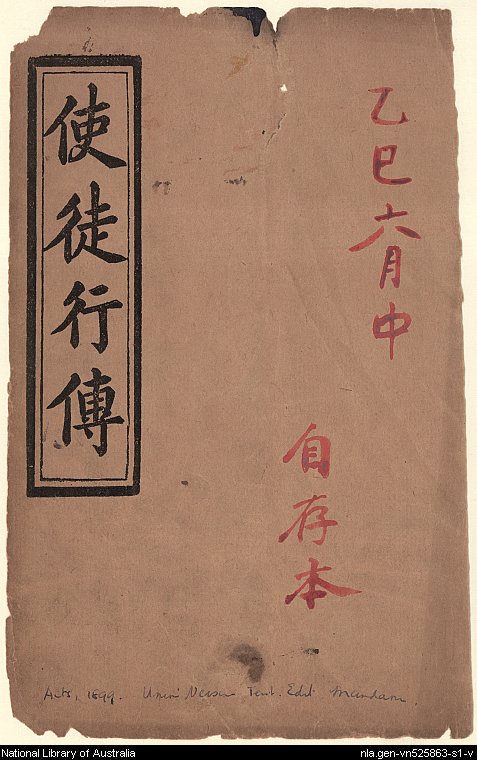 乙巳六月中
自存本
使徒行傳
Acts, 1899. Union Version Tent. Edit Mandarin.
National Library of Australia
nla.gen-vn525863-s1-v